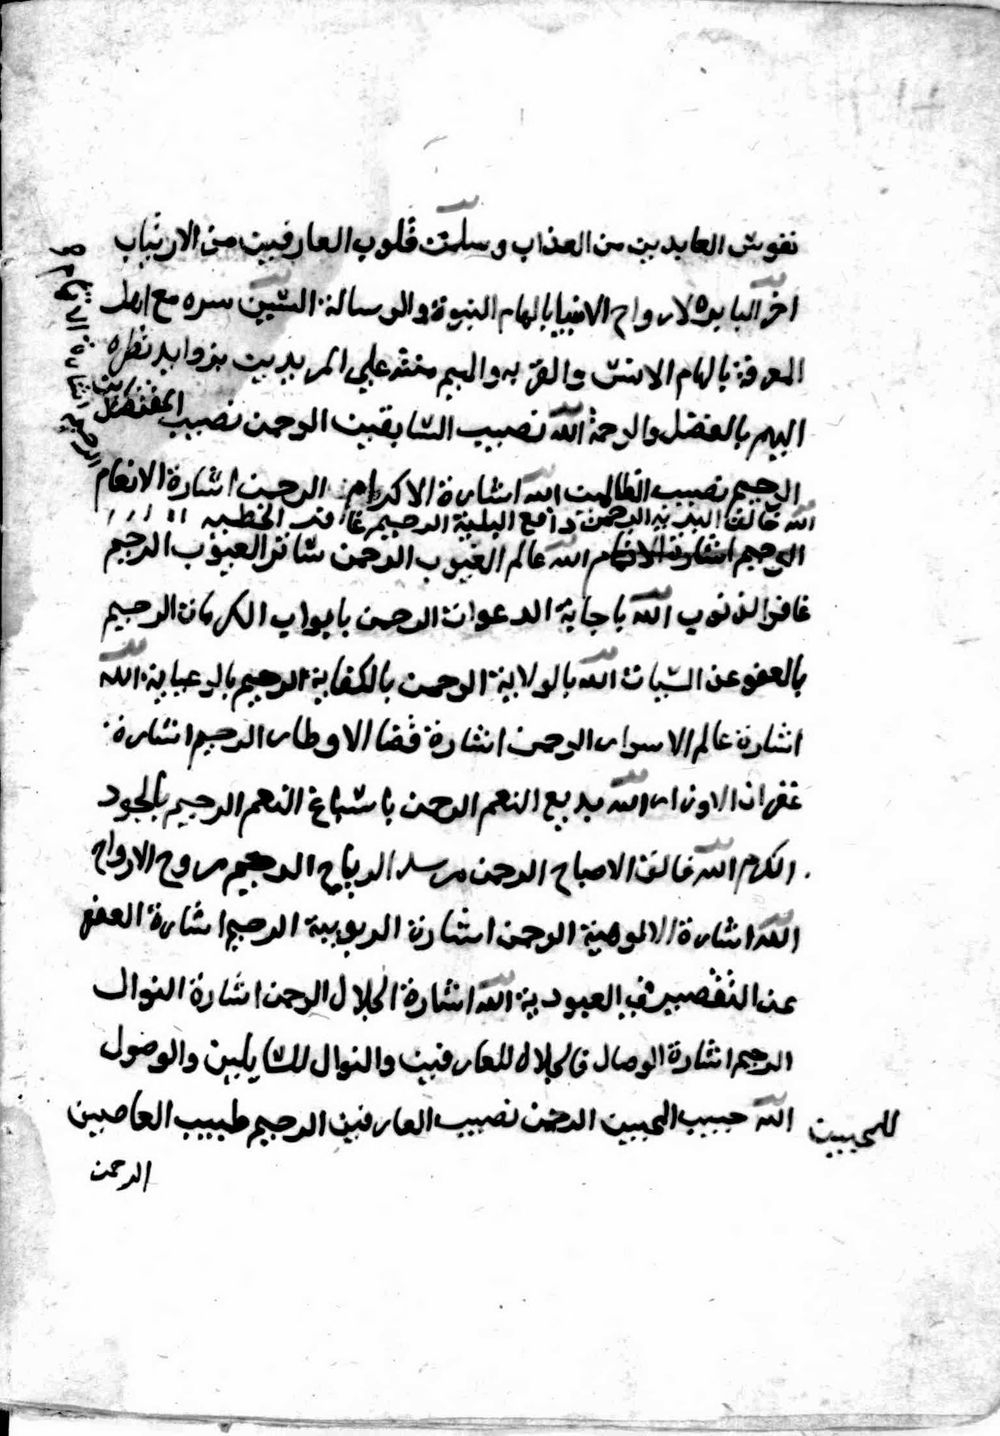 نفوس العابدين من العذاب وسلمت قلوب العارفين من الارتياب
اخر البا بره لارواح الانبيا بالهام النبوة والرسالة السين سره مع اهل
المعرفة بالهام الانس والقربه والميم منته علي المريدين بزوايد نظره
اليهم بالفضل والرحمة الله نصيب السابقين الرحمن نصيب المقتصدين
الرحيم نصيب الظالمين الله اشارة الاكرام الرحمن اشارة الانعام
الله خالق البريه الرحمن دافع البلية الرحيم غافر الخطيه
الرحيم اشارة الانتقام الله عالم الغيوب الرحمن ساتر العيوب الرحيم
غافر الذنوب الله باجابة الدعوات الرحمن بابواب الكرمات الرحيم
بالعفو عن السيات الله بالولاية الرحمن بالكفاية الرحيم بالرعاية الله
اشارة عالم الاسرار الرحمن اشارة قضا الاوطار الرحيم اشارة
غفران الاوزار الله بديع النعم الرحمن باسباغ النعم الرحيم بالجود
الكرم الله خالق الاصباح الرحمن مرسل الرياح الرحيم مروح الارواح
الله اشارة الالوهية الرحمن اشارة الربوبية الرحيم اشارة العفو
عن التقصير في العبودية الله اشارة الجلال الرحمن اشارة النوال
الرحيم اشارة الوصال فالجلال للعارفين والنوال للسايلين والوصول
للمحبين الله حبيب المحبين الرحمن نصيب العارفين الرحيم طبيب العاصين
الرحمن